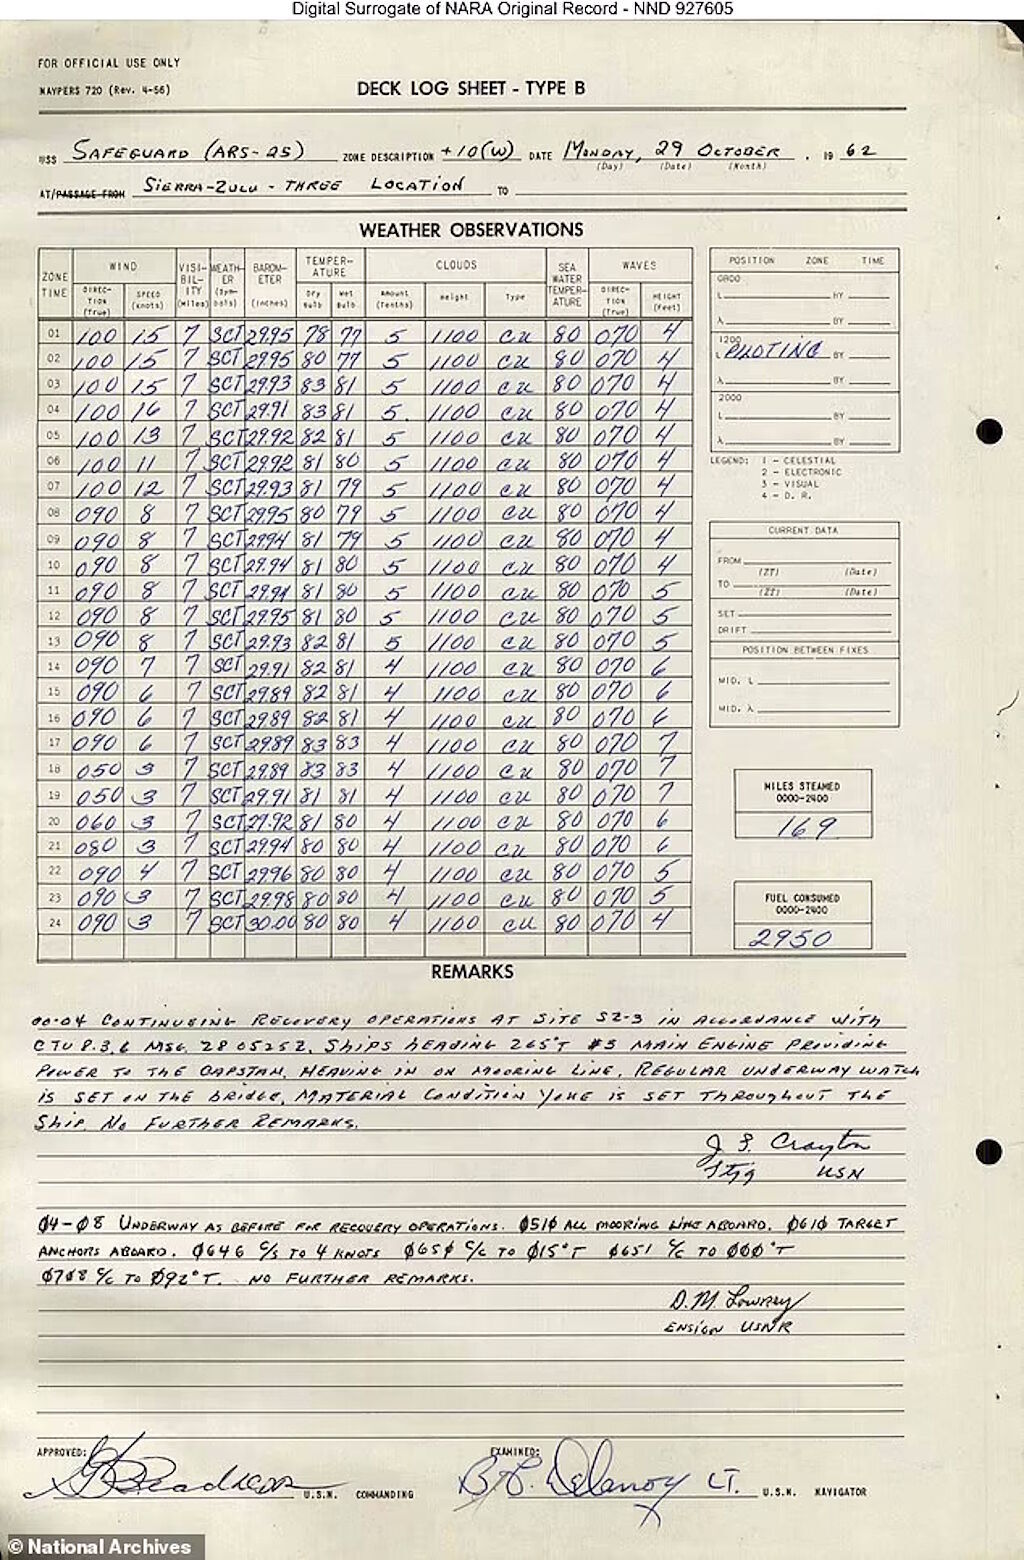 Digital Surrogate of NARA Original Record - NND 927605
FOR OFFICIAL USE ONLY
NAVPERS 720 (Rev. 4-56)
DECK LOG SHEET - TYPE B
USS SAFEGUARD (ARS-25) ZONE DESCRIPTION +10(W) DATE MONDAY, 29 OCTOBER, 19 62
(Day) (Date) (Month)
AT/PASSAGE FROM SIERRA-ZULU-THREE LOCATION TO
WEATHER OBSERVATIONS
ZONE TIME WIND VISIBILITY (Miles) WEATHER (Symbols) BAROMETER (Inches) TEMPERATURE CLOUDS SEA WATER TEMPERATURE WAVES
DIRECTION (True) SPEED (knots) Dry Bulb Wet Bulb Amount (Tenths) Height Type DIRECTION (True) HEIGHT (Feet)
01 100 15 7 SCT 29.95 78 77 5 1100 CU 80 070 4
02 100 15 7 SCT 29.95 80 77 5 1100 CU 80 070 4
03 100 15 7 SCT 29.93 83 81 5 1100 CU 80 070 4
04 100 16 7 SCT 29.91 83 81 5. 1100 CU 80 070 4
05 100 13 7 SCT 29.92 82 81 5 1100 CU 80 070 4
06 100 11 7 SCT 29.92 81 80 5 1100 CU 80 070 4
07 100 12 7 SCT 29.93 81 79 5 1100 CU 80 070 4
08 090 8 7 SCT 29.95 80 79 5 1100 CU 80 070 4
09 090 8 7 SCT 29.94 81 79 5 1100 CU 80 070 4
10 090 8 7 SCT 29.94 81 80 5 1100 CU 80 070 4
11 090 8 7 SCT 29.94 81 80 5 1100 CU 80 070 5
12 090 8 7 SCT 29.95 81 80 5 1100 CU 80 070 5
13 090 8 7 SCT 29.93 82 81 5 1100 CU 80 070 5
14 090 7 7 SCT 29.91 82 81 4 1100 CU 80 070 6
15 090 6 7 SCT 29.89 82 81 4 1100 CU 80 070 6
16 090 6 7 SCT 29.89 82 81 4 1100 CU 80 070 6
17 090 6 7 SCT 29.89 83 83 4 1100 CU 80 070 7
18 050 3 7 SCT 29.89 83 83 4 1100 CU 80 070 7
19 050 3 7 SCT 29.91 81 81 4 1100 CU 80 070 7
20 060 3 7 SCT 29.92 81 80 4 1100 CU 80 070 6
21 080 3 7 SCT 29.94 80 80 4 1100 CU 80 070 6
22 090 4 7 SCT 29.96 80 80 4 1100 CU 80 070 5
23 090 3 7 SCT 29.98 80 80 4 1100 CU 80 070 5
24 090 3 7 SCT 30.00 80 80 4 1100 CU 80 070 4
POSITION ZONE TIME
0800
L BY
λ BY
1200
L PILOTING BY
λ BY
2000
L BY
λ BY
LEGEND: 1 - CELESTIAL
2 - ELECTRONIC
3 - VISUAL
4 - D. R.
CURRENT DATA
FROM
(ZT) (Date)
TO
(ZT) (Date)
SET
DRIFT
POSITION BETWEEN FIXES
MID. L
MID. λ
MILES STEAMED
0000-2400
169
FUEL CONSUMED
0000-2400
2950
REMARKS
00-04 CONTINUEING RECOVERY OPERATIONS AT SITE SZ-3 IN ACCORDANCE WITH
CTU 8.3.6 MSG. 280525Z. SHIPS HEADING 265°T #3 MAIN ENGINE PROVIDING
POWER TO THE CAPSTAN, HEAVING IN ON MOORING LINE. REGULAR UNDERWAY WATCH
IS SET ON THE BRIDGE, MATERIAL CONDITION YOKE IS SET THROUGHOUT THE
SHIP. NO FURTHER REMARKS.
J. F. Crayton
Ltjg USN
04-08 UNDERWAY AS BEFORE FOR RECOVERY OPERATIONS. 0510 ALL MOORING LINE ABOARD. 0610 TARGET
ANCHORS ABOARD. 0646 C/S TO 4 KNOTS 0650 C/C TO 015°T 0651 C/C TO 000°T
0708 C/C TO 092°T. NO FURTHER REMARKS.
D. M. Lowrey
ENSIGN USNR
APPROVED: EXAMINED:
U.S.N. COMMANDING B. C. Delanoy LT. U.S.N. NAVIGATOR
© National Archives